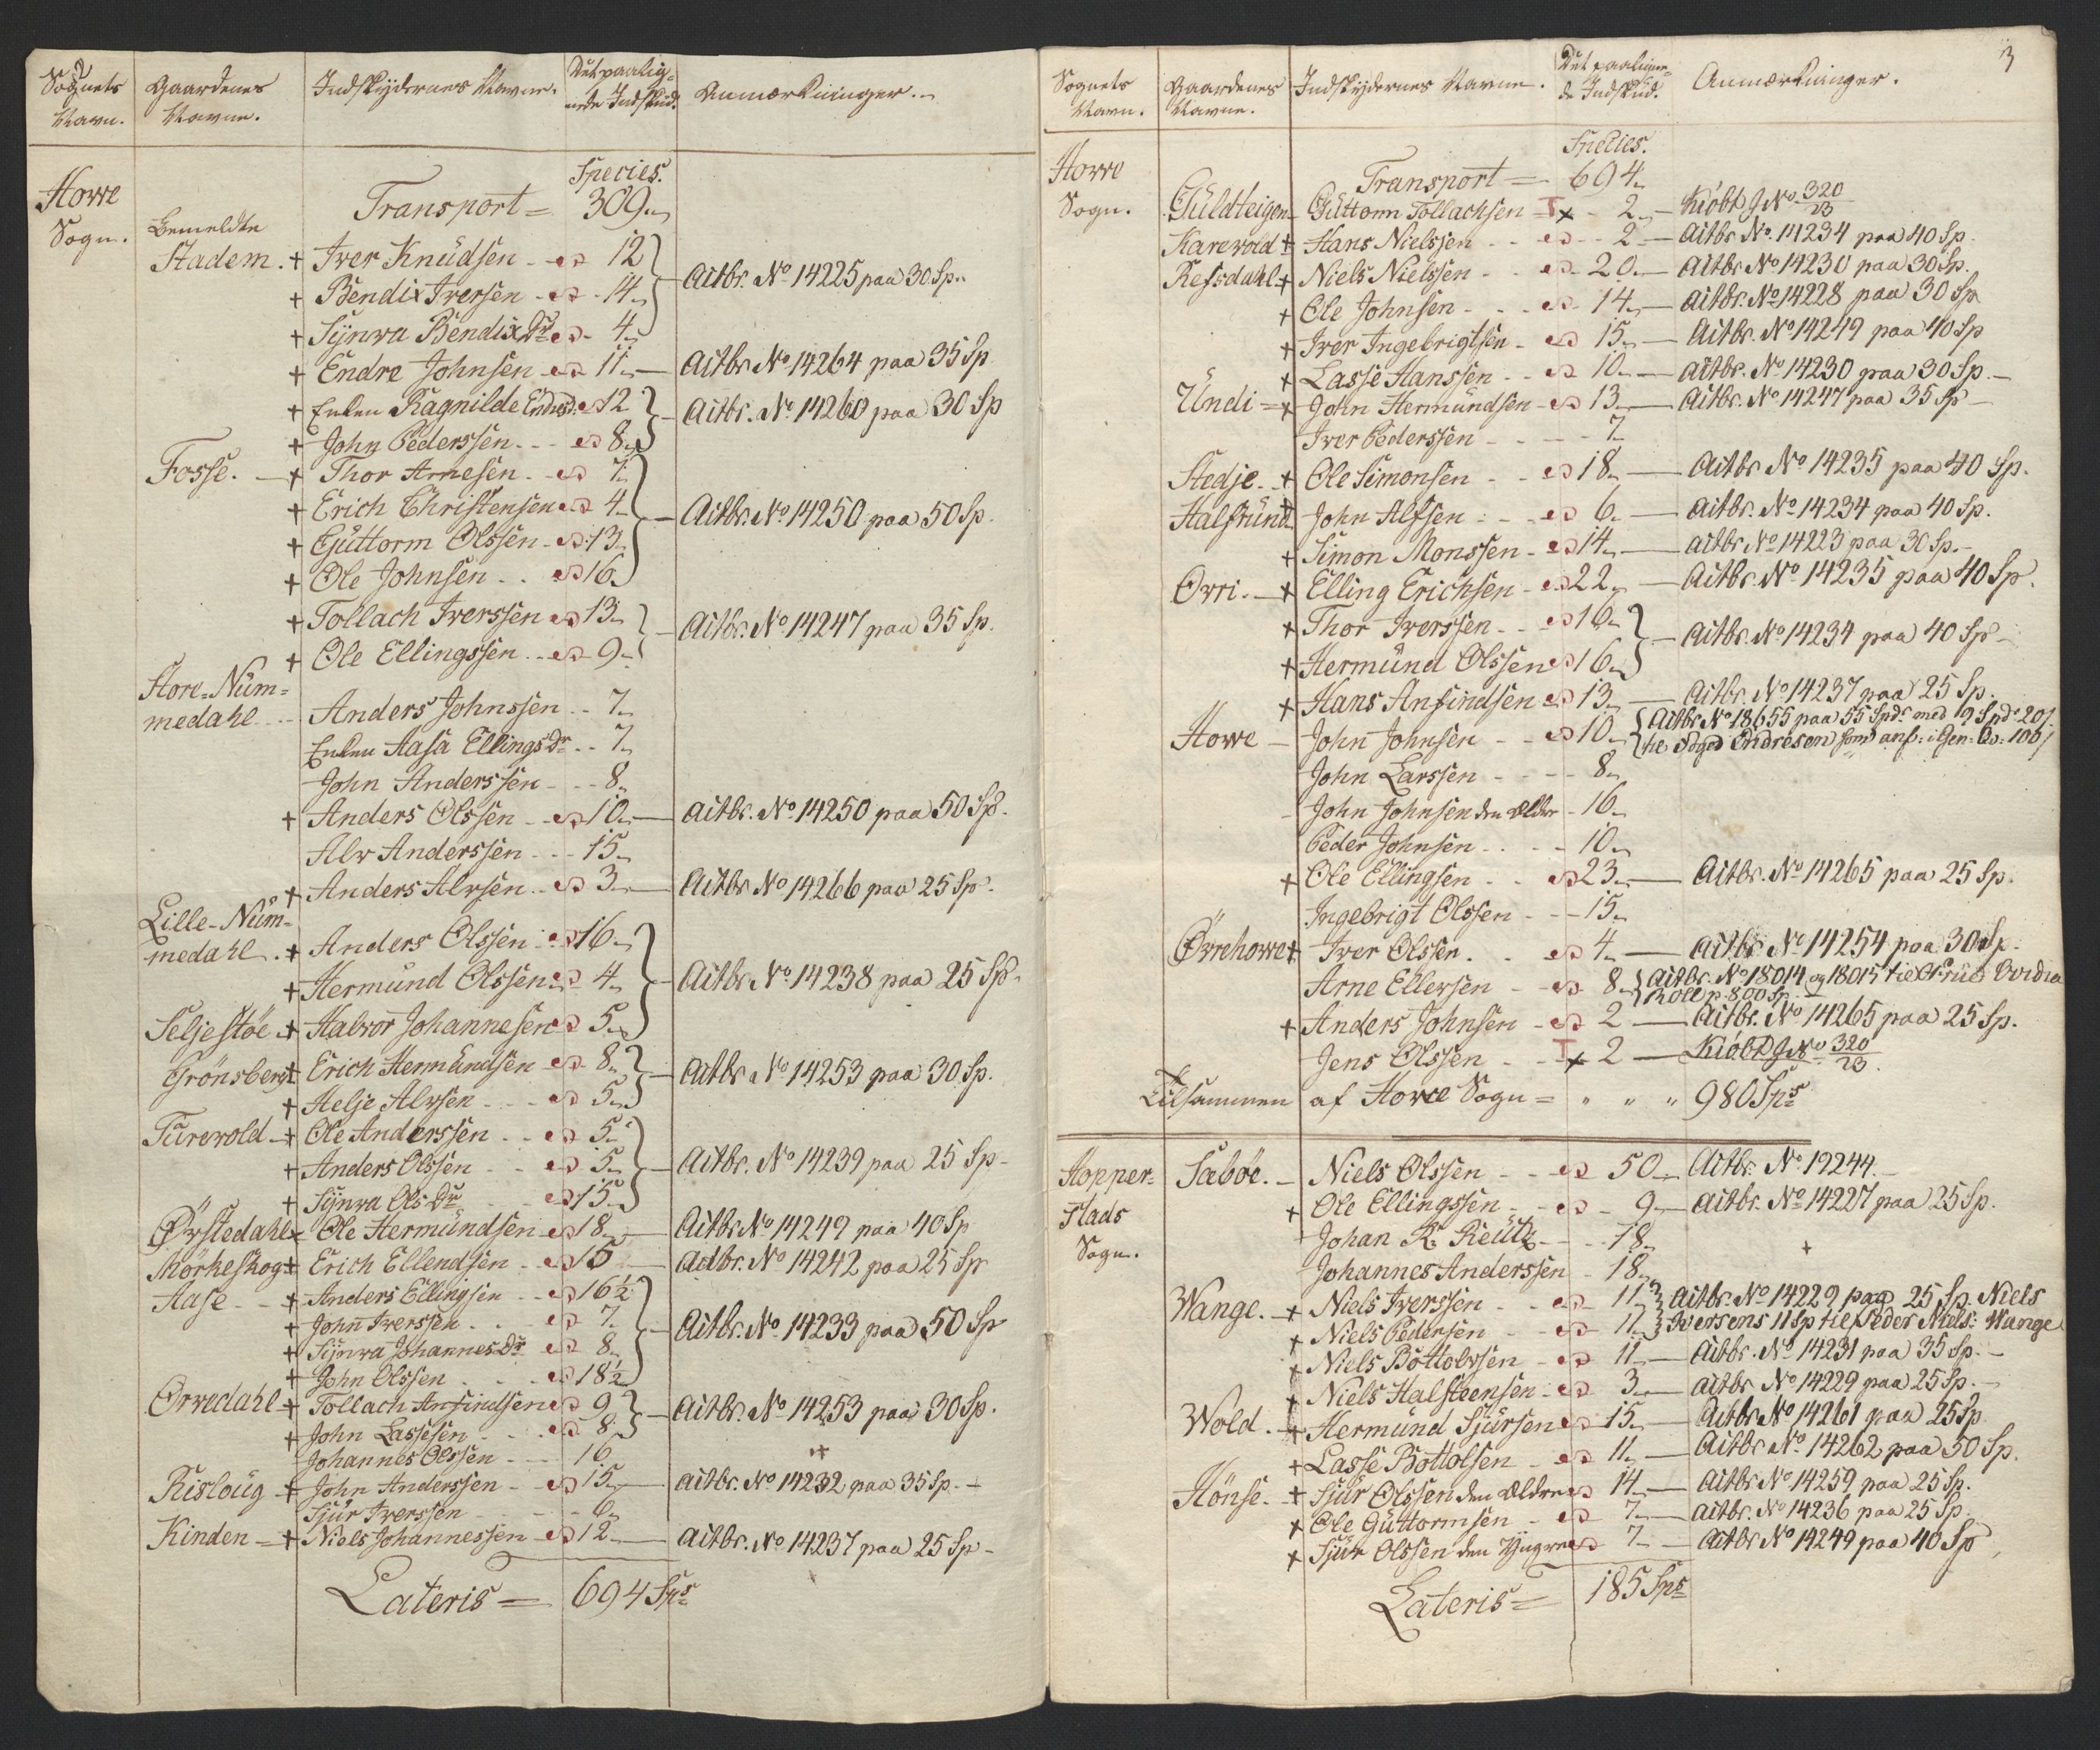 Sognets Navn. | Gaardenes Navne. | Indskydernes Navne. | Det paalignede Indskud. | Anmærkninger.
Species.
Howe Sogn. | Transport = 309
Bemeldte
Stadem. + Iver Knudsen 12
+ Bendix Iversen 14 } Actbr. No 14225 paa 30 Sp.
+ Synva Bendix Dr 4
+ Endre Johnsen 11 — Actbr. No 14264 paa 35 Sp
+ Enken Ragnilde Endresd. 12 } Actbr. No 14260 paa 30 Sp
+ John Pederssen 8
Fosse. + Thor Arnesen 7
+ Erich Christensen 4 } Actbr. No 14250 paa 50 Sp.
+ Guttorm Olssen 13
+ Ole Johnsen 16
+ Tollach Iverssen 13 } Actbr. No 14247 paa 35 Sp.
+ Ole Ellingssen 9
Store-Nummedahl Anders Johnssen 7
Enken Aasa Ellings Dr 7
John Anderssen 8
+ Anders Olssen 10 — Actbr. No 14250 paa 50 Sp.
Alv Anderssen 15
+ Anders Alvsen 3 — Actbr No 14266 paa 25 Sp.
Lille-Nummedahl. + Anders Olssen 16
+ Hermund Olssen 4 } Actbr. No 14238 paa 25 Sp.
Seljestöe + Halvor Johannesen 5
Grönsberg + Erich Hermundsen 8 } Actbr No 14253 paa 30 Sp.
+ Helje Alvsen 5
Turevold + Ole Anderssen 5
+ Anders Olssen 5 } Actbr. No 14239 paa 25 Sp
+ Synva Ols Dr 15
Ørstedahl + Ole Hermundsen 18 Actbr No 14249 paa 40 Sp
Mörkeskog + Erich Ellendsen 15 Actbr. No 14242 paa 25 Sp
Aase + Anders Ellingsen 16½
+ John Iverssen 7 } Actbr. No 14233 paa 50 Sp
+ Synva Johannes Dr 8
+ John Olssen 18½
Ørredahl + Tollach Anfindsen 9 } Actbr. No 14253 paa 30 Sp.
+ John Lassesen 8
Johannes Olssen 16 +
Risloug + John Anderssen 15 Actbr. No 14232 paa 35 Sp.
Sjur Iverssen 6
Kinden = + Niels Johannessen 12 — Actbr. No 14237 paa 25 Sp
Lateris = 694 Sps
3
Sognets Navn. | Gaardenes Navne. | Indskydernes Navne. | Det paalignede Indskud. | Anmærkninger.
Species.
Howe Sogn. | Transport = 694
Guldteigen Guttorm Tollachsen T + 2 Kiöbt J No 320/23
Karevold + Hans Nielssen 2 — Actbr No. 14234 paa 40 Sp.
Refsdahl + Niels Nielssen 20 — Actbr No 14230 paa 30 Sp.
+ Ole Johnsen 14 — Actbr. No 14228 paa 30 Sp
+ Iver Ingebrigtsen 15 — Actbr. No 14249 paa 40 Sp
+ Lasse Hanssen 10 — Actbr. No 14230 paa 30 Sp.
Undi = + John Hermundsen 13 — Actbr. No 14247 paa 35 Sp
Iver Pederssen 7
Stedje + Ole Simonsen 18 — Actbr No 14235 paa 40 Sp.
Halfrund John Alfsen 6 — Actbr. No 14234 paa 40 Sp.
+ Simon Monssen 14 — Actbr No 14223 paa 30 Sp.
Ovri. + Elling Erichsen 22 — Actbr. No 14235 paa 40 Sp.
+ Thor Iverssen 16 } Actbr. No 14234 paa 40 Sp
+ Hermund Olssen 16
+ Hans Anfindsen 13 — Actbr. No 14237 paa 25 Sp.
Howe John Johnsen 10 { Actbr No 18655 paa 55 Spdr med 9 Spd 20 s
Endresen som anf: i Gen:
John Larssen 8
John Johnsen den Ældre 16
Peder Johnsen 10
+ Ole Ellingsen 23 — Actbr. No 14265 paa 25 Sp.
Ingebrigt Olssen 15
Øvrehowe + Iver Olssen. 4 — Actbr No 14254 paa 30 Sp.
Arne Ellersen 8 { Actbr. No 18014 og 18015
p. 800 Sp.
+ Anders Johnsen 2 — Actbr. No 14265 paa 25 Sp.
Jens Olssen T + 2 — Kiöbt J No 320/23.
Tilsammen af Howe Sogn = " " " 980 Sps
Hopperstads Sogn. | Saböe. Niels Olssen 50 Actbr. No 19244.
+ Ole Ellingssen 9 Actbr. No 14227 paa 25 Sp.
Johan R. Reutz 18 +
Johannes Anderssen 18
Wange. + Niels Iverssen 11 } Actbr. No 14229 paa 25 Sp. Niels
+ Niels Pedersen 11 } Iversens 11 Sp til Peder Niels: Wange
+ Niels Bottolvsen 11 — Actbr. No 14231 paa 35 Sp.
+ Niels Halsteensen 3 — Actbr No 14229 paa 25 Sp.
Wold. + Hermund Sjursen 15 — Actbr No 14261 paa 25 Sp
+ Lasse Bottolsen 11 — Actbr No 14262 paa 50 Sp.
Hönse. + Sjur Olssen den Ældre 14 — Actbr No 14259 paa 25 Sp.
+ Ole Guttormsen 7 — Actbr. No 14236 paa 25 Sp
+ Sjur Olssen den Yngre 7 — Actbr No 14249 paa 40 Sp
Lateris = 185 Sps